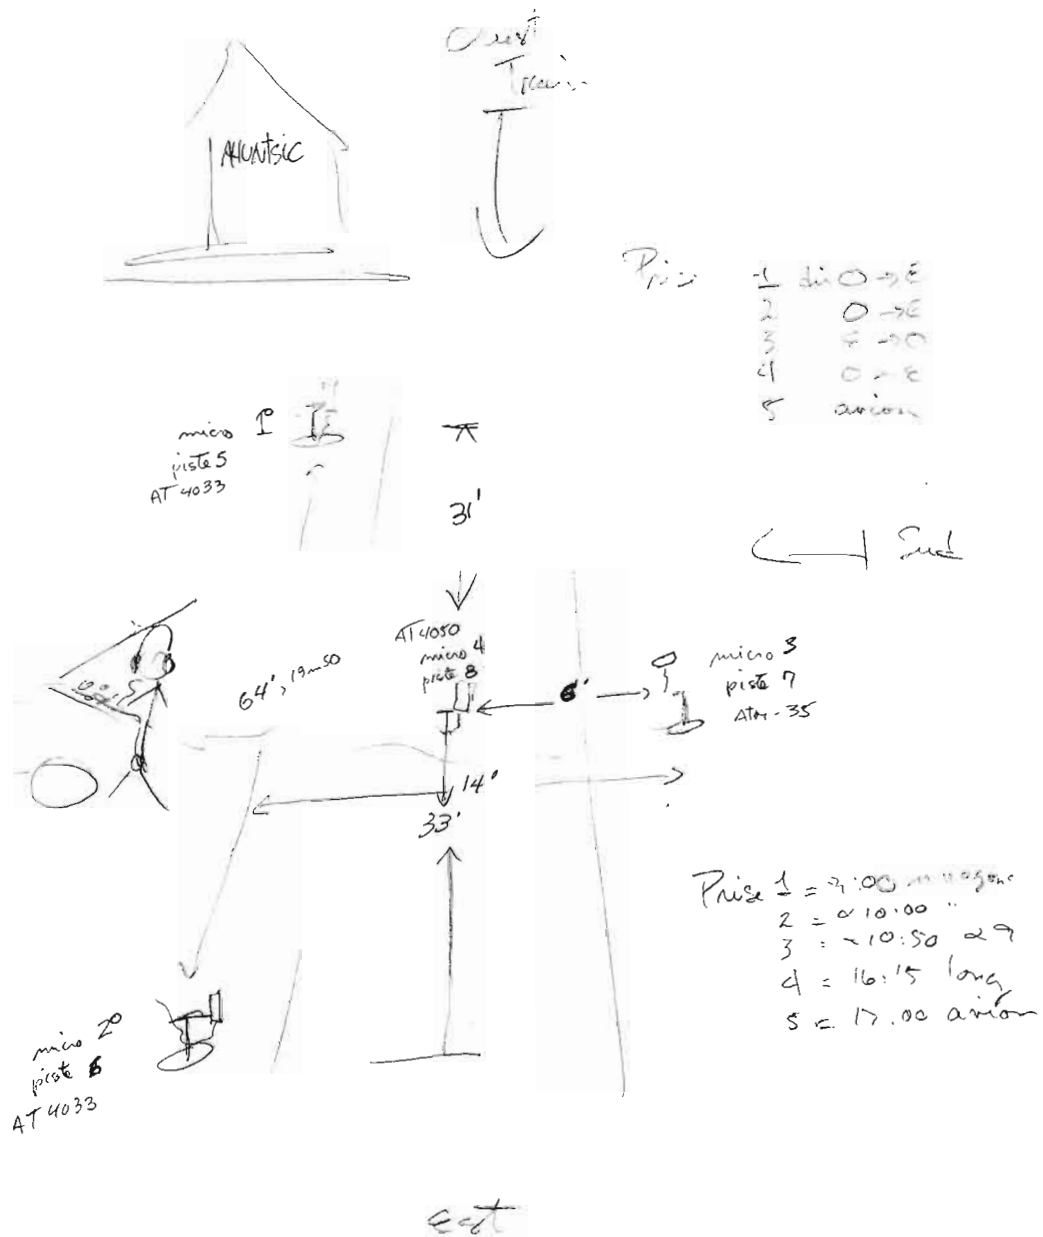 Ouest
Train
AHUNTSIC
Prise 1 dir O → E
2 O → E
3 E → O
4 O → E
5 avion
micro 1º
piste 5
AT 4033
31'
Sud
AT 4050
micro 4
piste 8
64', 19m50
6'
micro 3
piste 7
ATM-35
14'
33'
Prise 1 = :00
2 = ∝ 10:00 "
3 = ~10:50
4 = 16:15 long
5 = 17.00 avion
micro 2º
piste 6
AT 4033
Est